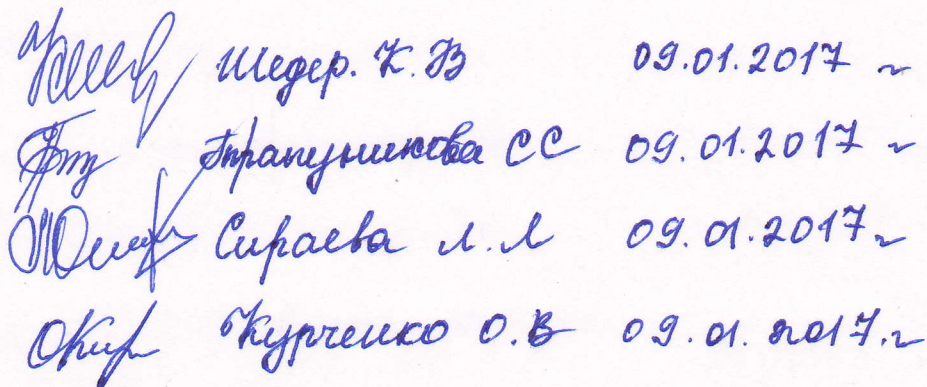 Шедер. К.В 09.01.2017 г
СС 09.01.2017 г
Сираева Л.Л 09.01.2017.г
Курченко О.В 09.01.2017.г